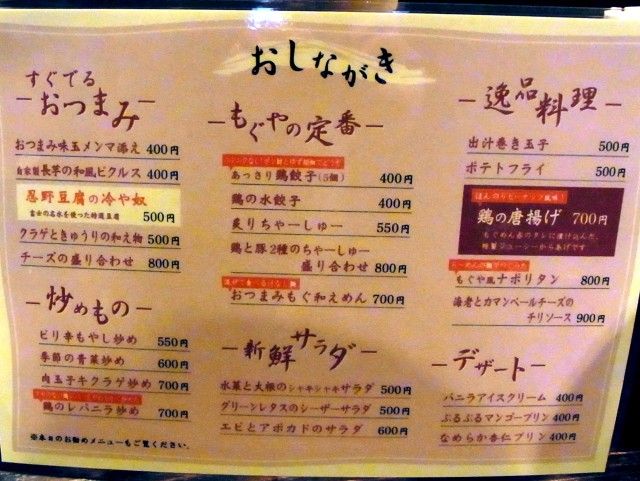 おしながき
すぐでる
おつまみ
おつまみ味玉メンマ添え 400円
自家製長芋の和風ピクルス 400円
忍野豆腐の冷や奴
富士の名水を使った特選豆腐 500円
クラゲときゅうりの和え物 500円
チーズの盛り合わせ 800円
炒めもの
ピリ辛もやし炒め 550円
季節の青菜炒め 600円
肉玉子キクラゲ炒め 700円
鶏のレバニラ炒め 700円
※本日のお勧めメニューもご覧ください。
もぐやの定番
あっさり鶏餃子(5個) 400円
鶏の水餃子 400円
炙りちゃーしゅー 550円
鶏と豚2種のちゃーしゅー
盛り合わせ 800円
混ぜて食べる汁なし麺
おつまみもぐ和えめん 700円
新鮮サラダ
水菜と大根のシャキシャキサラダ 500円
グリーンレタスのシーザーサラダ 500円
エビとアボカドのサラダ 600円
逸品料理
出汁巻き玉子 500円
ポテトフライ 500円
ほんのりピーナッツ風味!
鶏の唐揚げ 700円
もぐめん赤のタレに漬け込んだ、
特製ジューシーからあげです
もぐや風ナポリタン 800円
海老とカマンベールチーズの
チリソース 900円
デザート
バニラアイスクリーム 400円
ぷるぷるマンゴープリン 400円
なめらか杏仁プリン 400円